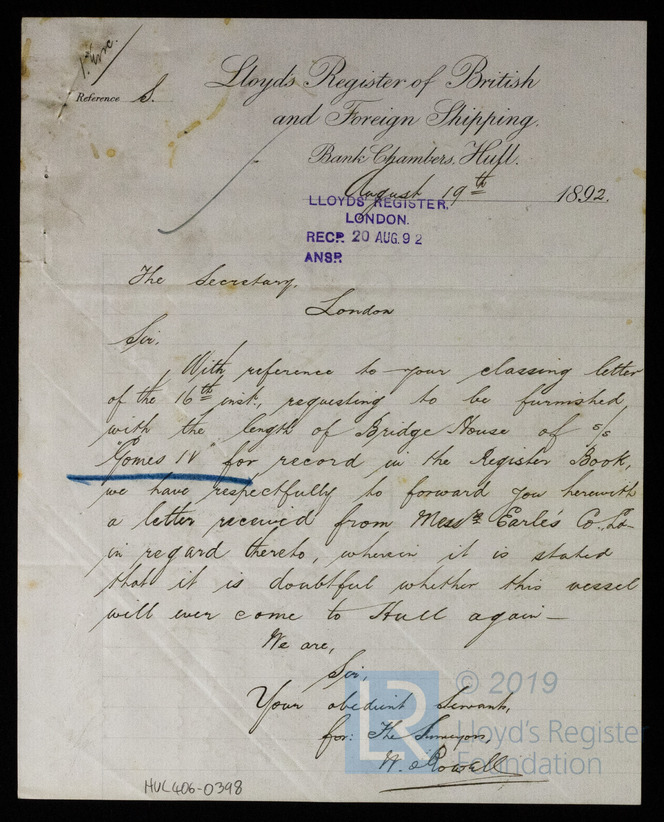 1 Enc.
Reference S.
Lloyds Register of British
and Foreign Shipping.
Bank Chambers, Hull.
August 19th 1892.
LLOYDS' REGISTER,
LONDON.
RECD. 20 AUG. 92
ANSD.
The Secretary,
London
Sir,
With reference to your classing letter
of the 16th inst., requesting to be furnished
with the length of Bridge House of s/s
"Gomes IV" for record in the Register Book,
we have respectfully to forward you herewith
a letter received from Messrs Earle's Co. Ld
in regard thereto, wherein it is stated
that it is doubtful whether this vessel
will ever come to Hull again—
We are,
Sir,
Your obedient Servants,
for: The Surveyors,
W. Rowell
LR
© 2019
Lloyd's Register
Foundation
HUL406-0398